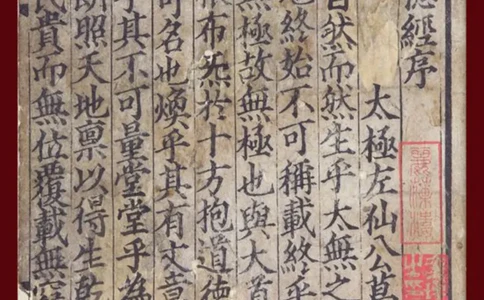 德經序
太極左仙公葛
自然而然生乎太無之
地終始不可稱載終乎
無極故無極也與大道
布炁於十方抱道德
可名也煥乎其有文章
乎其不可量堂堂乎為
朗照天地稟以得生乾
民貴而無位覆載無窮